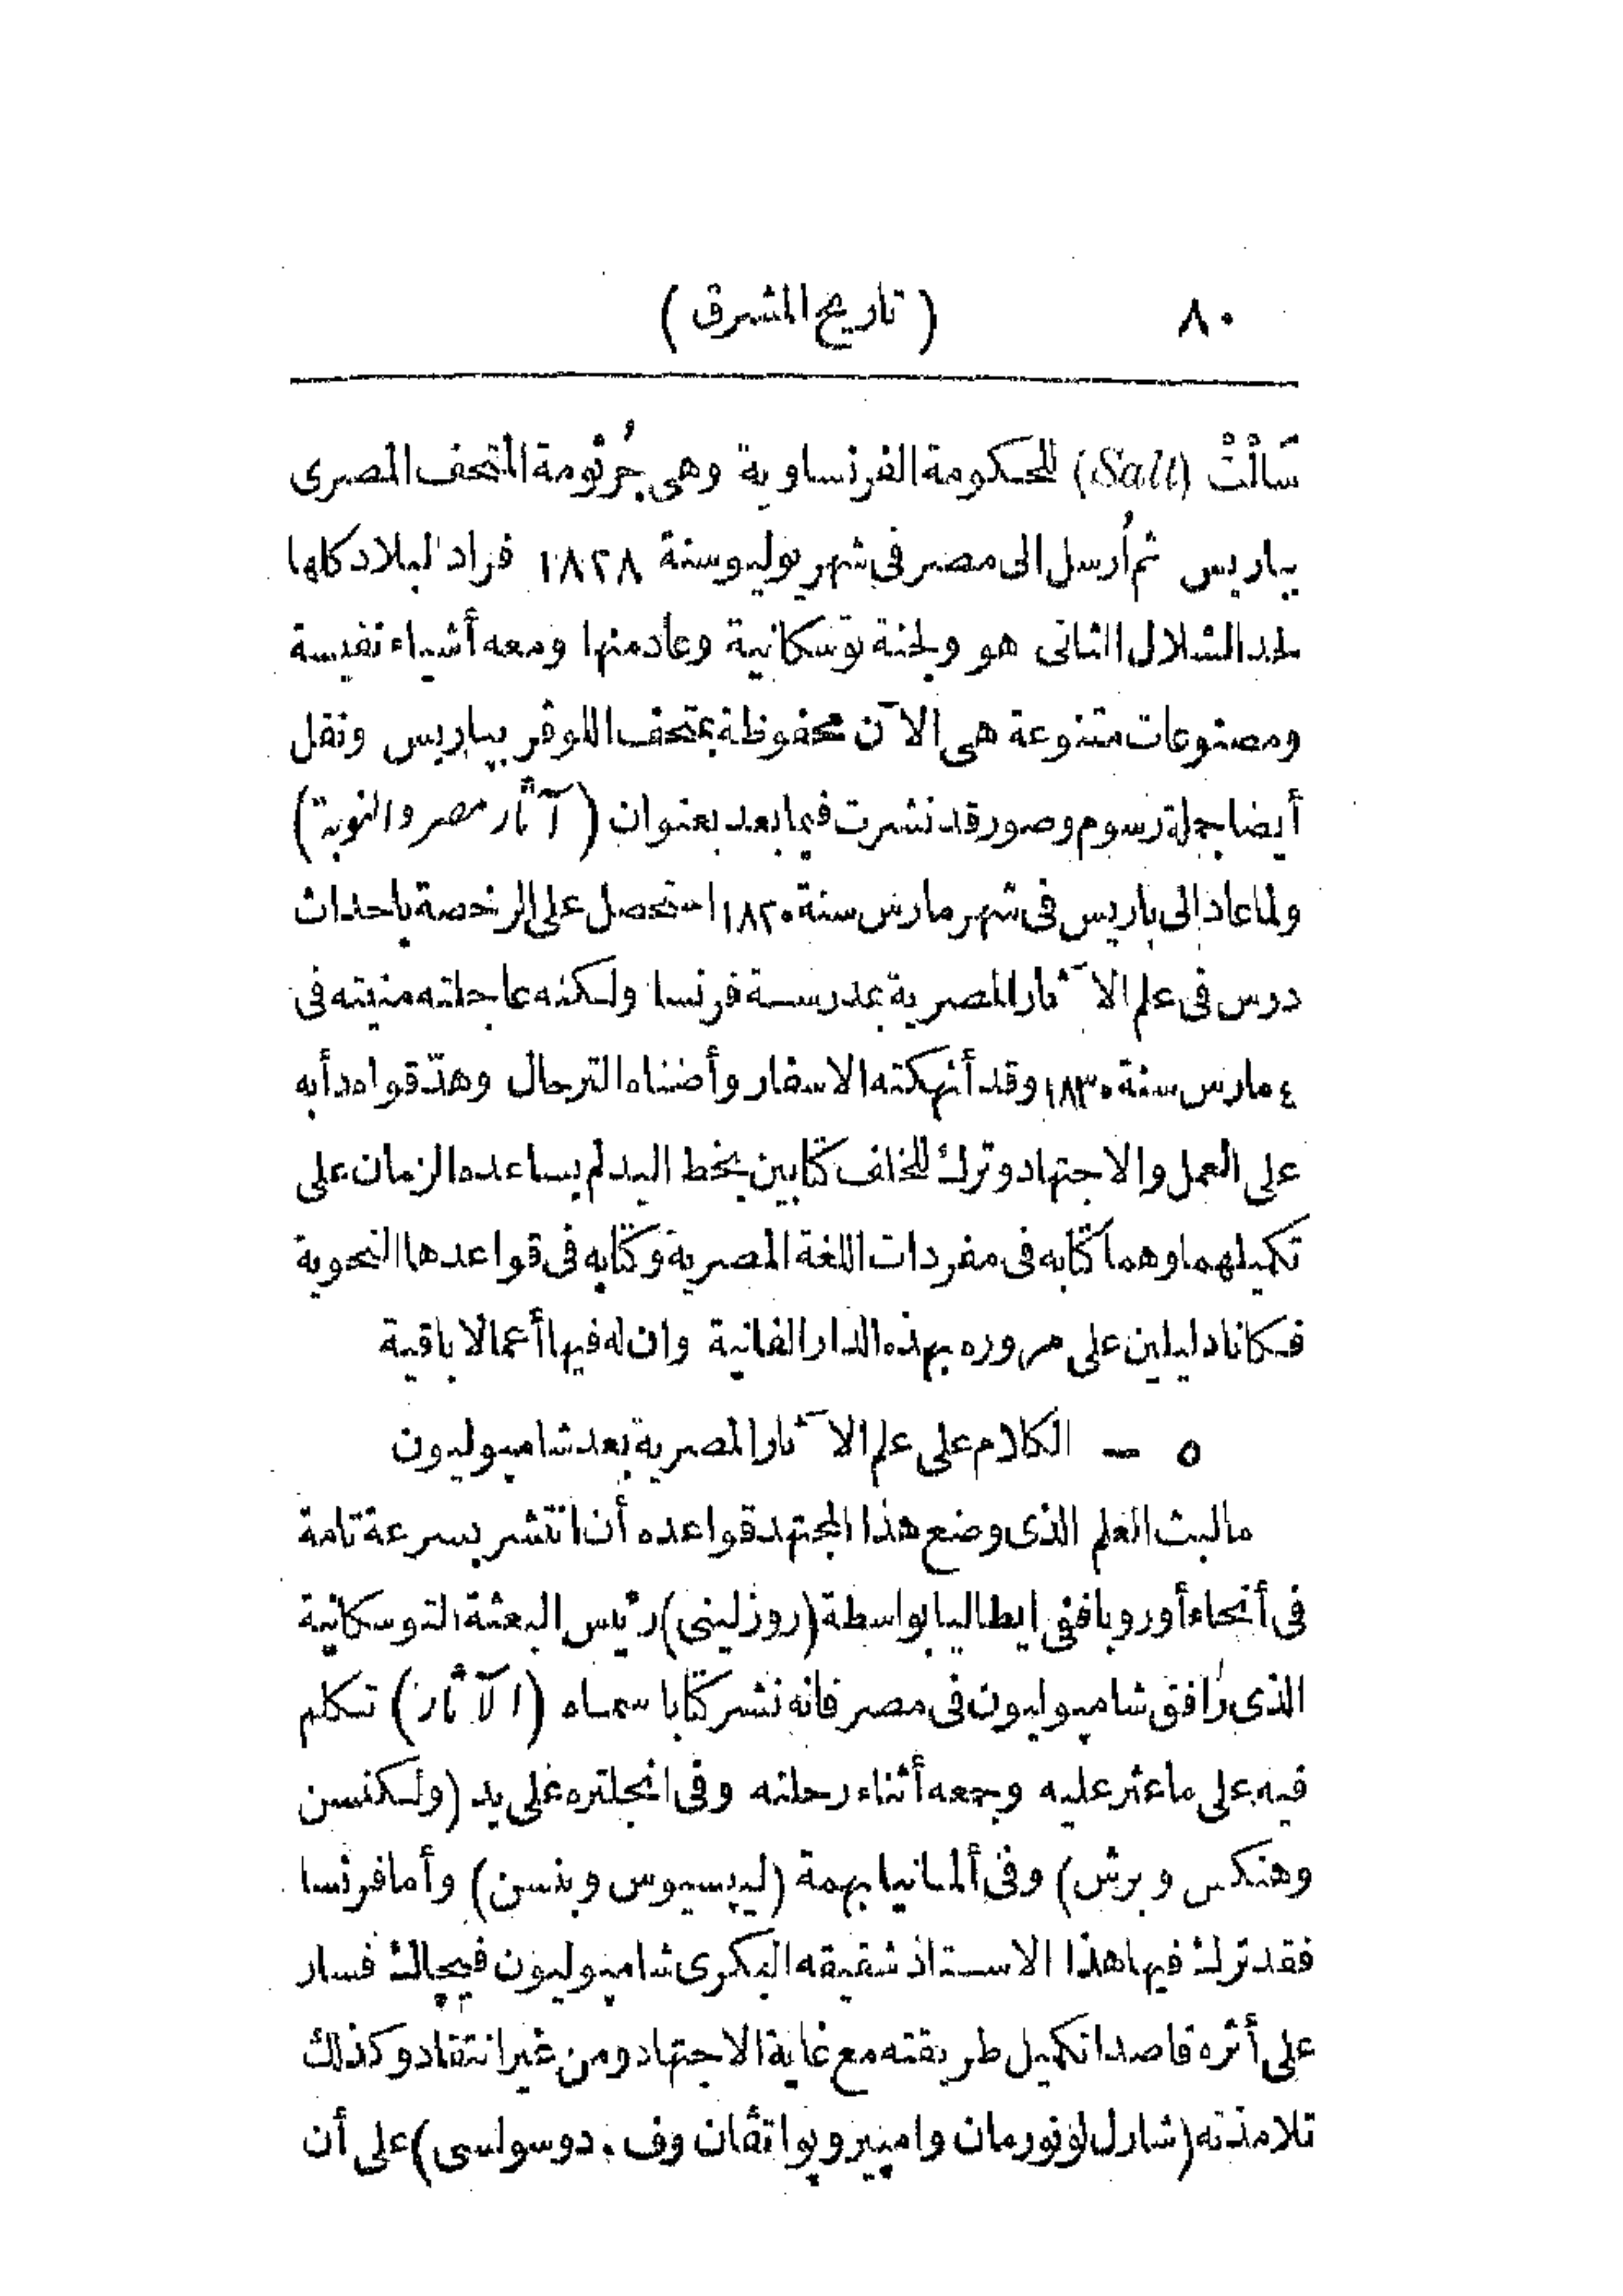 ٨٠ ( تاريخ المشرق )
سَالْتْ (Salt) للحكومة الفرنساوية وهى جُرثومة المتحف المصرى
بباريس ثم أُرسل الى مصر فى شهر يوليو سنة ١٨٢٨ فراد البلاد كلها
لحد الشلال الثانى هو ولجنة توسكانية وعاد منها ومعه أشياء نفيسة
ومصنوعات متنوعة هى الآن محفوظة بمتحف اللوڤر بباريس ونقل
أيضا جملة رسوم وصور قد نشرت فيما بعد بعنوان ( آثار مصر والنوبة )
ولما عاد الى باريس فى شهر مارس سنة ١٨٣٠ استحصل على الرخصة باحداث
درس فى علم الآثار المصرية بمدرسة فرنسا ولكنه عاجلته منيته فى
٤ مارس سنة ١٨٣٠ وقد أنهكته الاسفار وأضناه الترحال وهدّ قواه دأبه
على العمل والاجتهاد وترك للخلف كتابين بخط اليد لم يساعده الزمان على
تكميلهما وهما كتابه فى مفردات اللغة المصرية وكتابه فى قواعدها النحوية
فكانا دليلين على مروره بهذه الدار الفانية وان له فيها أعمالا باقية
٥ — الكلام على علم الآثار المصرية بعد شامپوليون
ما لبث العلم الذى وضع هذا المجتهد قواعده أن انتشر بسرعة تامة
فى أنحاء أوروبا ففى ايطاليا بواسطة (روزلينى) رئيس البعثة التوسكانية
الذى رافق شامپوليون فى مصر فانه نشر كتابا سماه (الآثار) تكلم
فيه على ما عثر عليه وجمعه أثناء رحلته وفى انجلتره على يد (ولكنسن
وهنكس وبرش) وفى ألمانيا بهمة (ليپسيوس وبنسن) وأما فرنسا
فقد ترك فيها هذا الاستاذ شقيقه البكرى شامپوليون فيچاك فسار
على أثره قاصدا تكميل طريقته مع غاية الاجتهاد ومن غير انتقاد وكذلك
تلامذته (شارل لونورمان وامپير وپواتڤان وف . دوسولسى) على أن